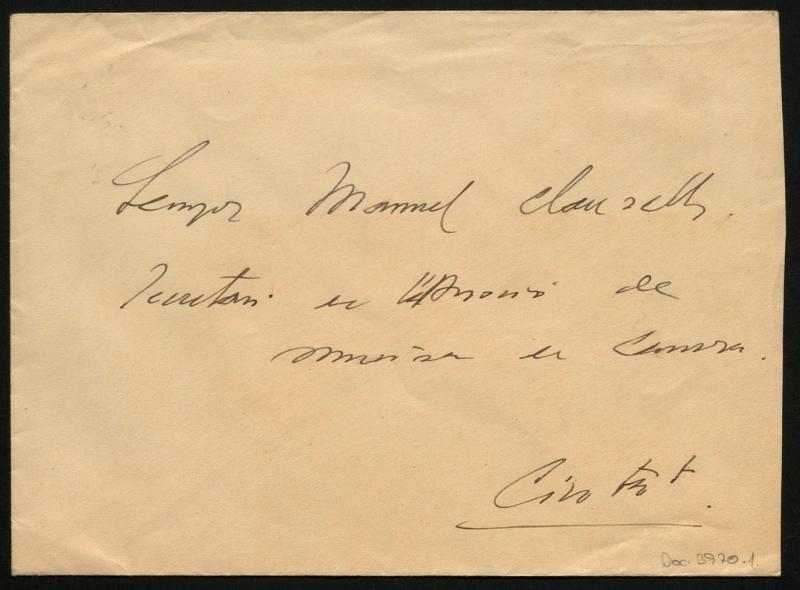 Senyor Manuel Clausells.
Secretari de l'Associació de
música de Camera.
Ciutat.
Doc 3970.1